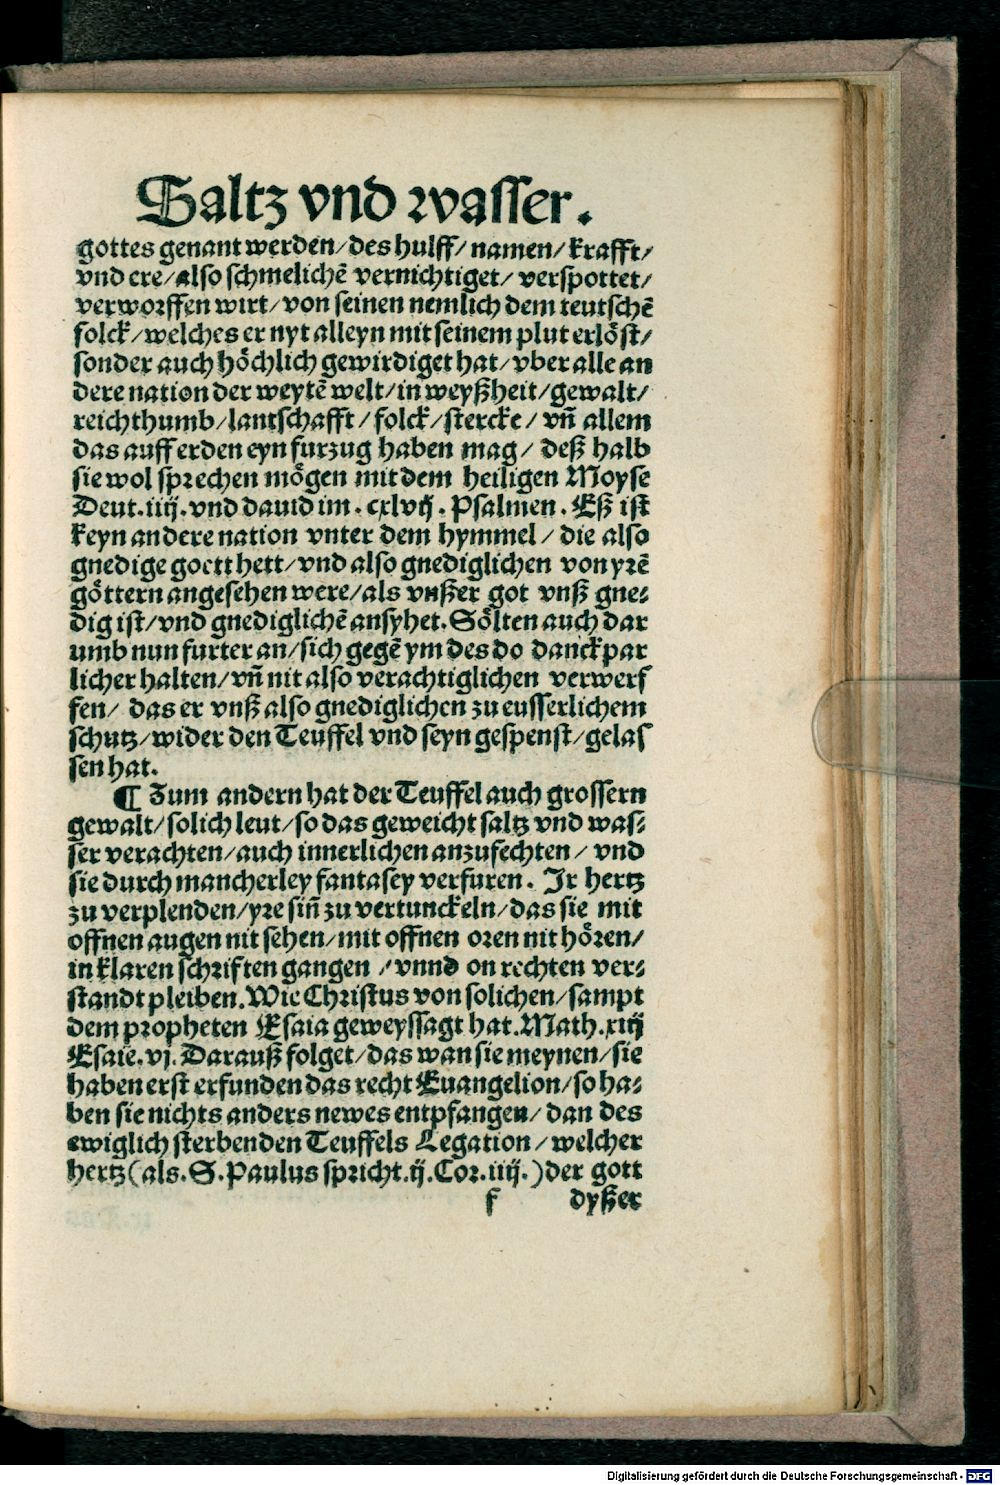 Saltz vnd wasser.
gottes genant werden/des hulff/ namen/ krafft/
vnd ere/also schmelichē vernichtiget/ verspottet/
verworffen wirt/von seinen nemlich dem teutschē
folck/welches er nyt alleyn mit seinem plut erlöst/
sonder auch höchlich gewirdiget hat/vber alle an
dere nation der weytē welt/in weyßheit/gewalt/
reichthumb/lantschafft/ folck/stercke/ vn̄ allem
das auff erden eyn furzug haben mag/ deß halb
sie wol sprechen mögen mit dem heiligen Moyse
Deut.iiij.vnd dauid im.cxlvij.Psalmen.Eß ist
keyn andere nation vnter dem hymmel/ die also
gnedige goett hett/vnd also gnediglichen von yrē
göttern angesehen were/als vnßer got vnß gne⸗
dig ist/vnd gnediglichē ansyhet.Sölten auch dar
umb nun furter an/sich gegē ym des do danckpar
licher halten/vn̄ nit also verachtiglichen verwerf
fen/ das er vnß also gnediglichen zu eusserlichem
schutz/wider den Teuffel vnd seyn gespenst/gelas
sen hat.
¶ Zum andern hat der Teuffel auch grossern
gewalt/solich leut/so das geweicht saltz vnd was⸗
ser verachten/auch innerlichen anzufechten/ vnd
sie durch mancherley fantasey verfuren. Jr hertz
zu verplenden/yre sin̄ zu vertunckeln/das sie mit
offnen augen nit sehen/mit offnen oren nit hören/
in klaren schriften gangen /vnnd on rechten ver⸗
standt pleiben.Wie Christus von solichen/sampt
dem propheten Esaia geweyssagt hat.Math.xiij
Esaie.vj.Darauß folget/das wan sie meynen/sie
haben erst erfunden das recht Euangelion/so ha⸗
ben sie nichts anders newes entpfangen/dan des
ewiglich sterbenden Teuffels Legation/welcher
hertz(als.S.Paulus spricht.ij.Cor.iiij.)der gott
f dyßer
Digitalisierung gefördert durch die Deutsche Forschungsgemeinschaft - DFG